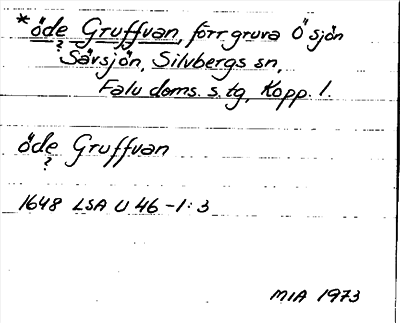 * öde Gruffvan, förr gruva Ö sjön
?
Sävsjön, Silvbergs sn,
Falu doms. s. tg, Kopp. l.
öde Gruffvan
?
1648 LSA U 46 -1: 3
MIA 1973